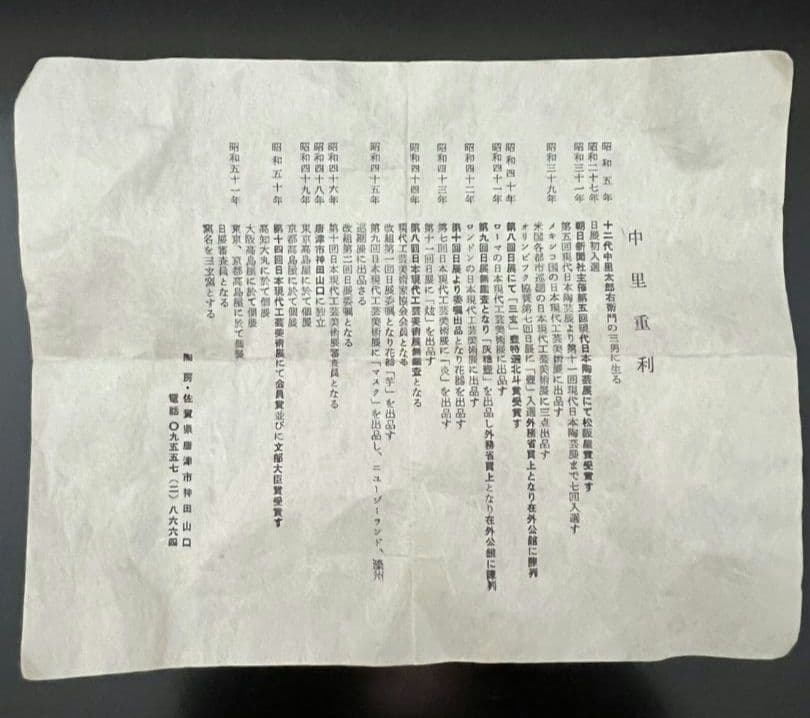 中里重利
昭和五年 十二代中里太郎右衛門の三男に生る
昭和二十七年 日展初入選
昭和三十一年 朝日新聞社主催第五回現代日本陶芸展にて松阪屋賞受賞す
第五回現代日本陶芸展より第十一回現代日本陶芸展まで七回入選す
昭和三十九年 メキシコ国の日本現代工芸美術展に出品す
米国各都市巡廻の日本現代工芸美術展に三点出品す
オリンピック協賛第七回日展に「壷」入選外務省買上となり在外公館に陳列
昭和四十年 第八回日展にて「三玄」壷特選北斗賞受賞す
昭和四十一年 ローマの日本現代工芸美術展に出品す
第九回日展無鑑査となり「灰釉壷」を出品し外務省買上となり在外公館に陳列
昭和四十二年 ロンドンの日本現代工芸美術展に出品す
第十回日展より委嘱出品となり花器を出品す
昭和四十三年 第七回日本現代工芸美術展に「炎」を出品す
第十一回日展に「炫」を出品す
昭和四十四年 第八回日本現代工芸美術展無鑑査となる
現代工芸美術家協会会員となる
改組第一回日展委嘱となり花器「芋」を出品す
昭和四十五年 第九回日本現代工芸美術展に「マスク」を出品し、ニュージーランド、濠州
巡廻展に出品さる
改組第二回日展委嘱となる
昭和四十六年 第十回日本現代工芸美術展審査員となる
昭和四十八年 唐津市神田山口に独立
昭和四十九年 東京高島屋に於て個展
京都高島屋に於て個展
昭和五十年 第十四回日本現代工芸美術展にて会員賞並びに文部大臣賞受賞す
高知大丸に於て個展
大阪高島屋に於て個展
昭和五十一年 東京・京都高島屋に於て個展
日展審査員となる
窯名を三玄窯とする
陶房・佐賀県唐津市神田山口
電話〇九五五七(二)八六六四